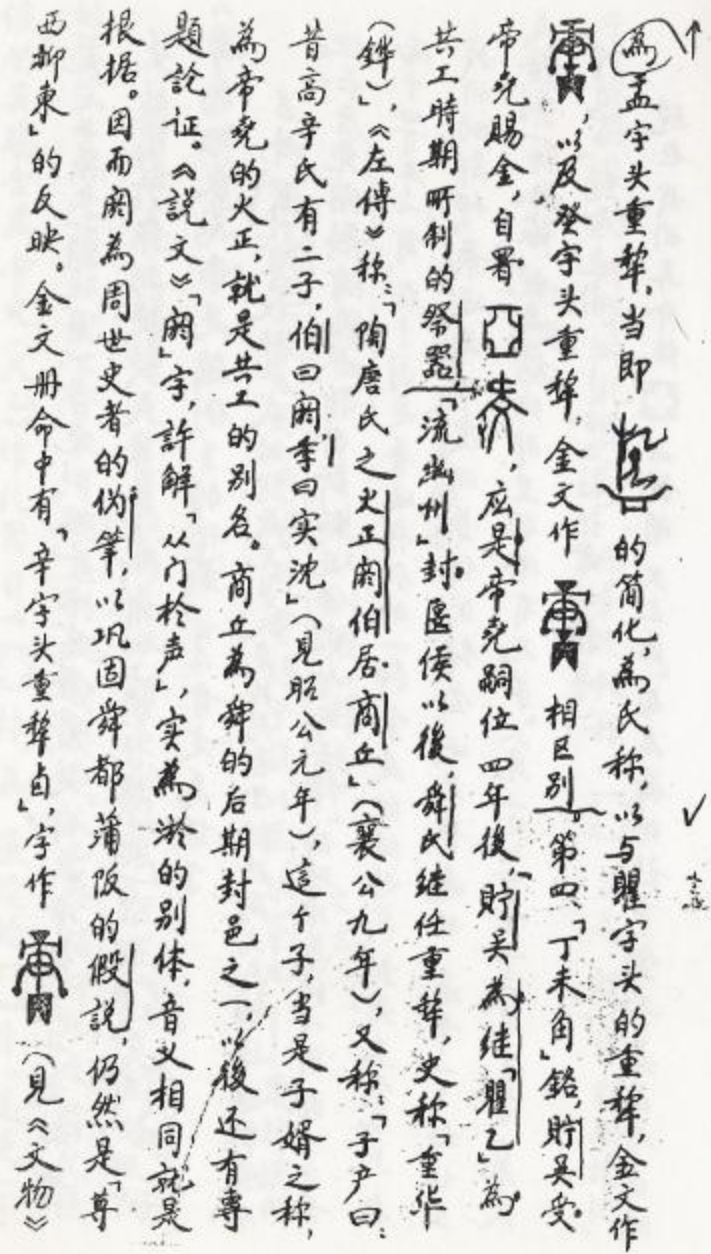 為孟字头重犂,当即 的简化,為氏称,以与瞿字头的重犂,金文作
,以及癸字头重犂,金文作 相区别。第四、「丁未角」铭,貯吴受
帝尭賜金,自署 ,应是帝尭嗣位四年後,「貯吴為继「瞿乙」為
共工時期所制的祭器,「流幽州」封匽侯以後,舜氏继任重犂,史称「重华
(鏵)」,《左傳》称:「陶唐氏之火正阏伯居商丘」(襄公九年),又称:「子产曰:
昔高辛氏有二子,伯曰阏季曰实沈」(見昭公元年),這个子,当是子婿之称,
為帝尭的火正,就是共工的别名。商丘為舜的后期封邑之一,以後还有專
題論证。《説文》「阏」字,許解「从门於声」,实為淤的别体,音义相同就是
根据。因而阏為周世史者的伪筆,以巩固舜都蒲阪的假説,仍然是「尊
西抑東」的反映。金文册命中有「辛字头重犂卣」,字作 (見《文物》